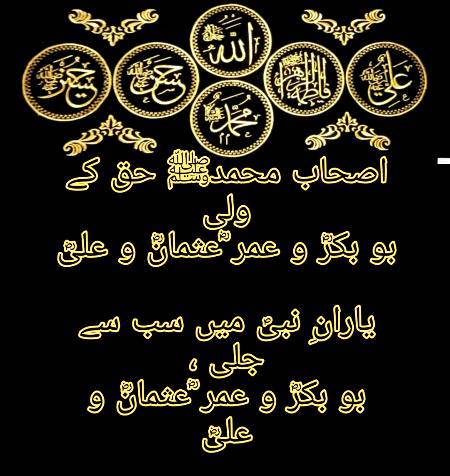 حسین حسن الله فاطمة الزهراء علی
محمد
اصحاب محمدﷺ حق کے
ولی
بو بکرؓ و عمرؓ عثمانؓ و علیؓ
یارانِ نبیؐ میں سب سے
جلی ،
بو بکرؓ و عمرؓ عثمانؓ و
علیؓ